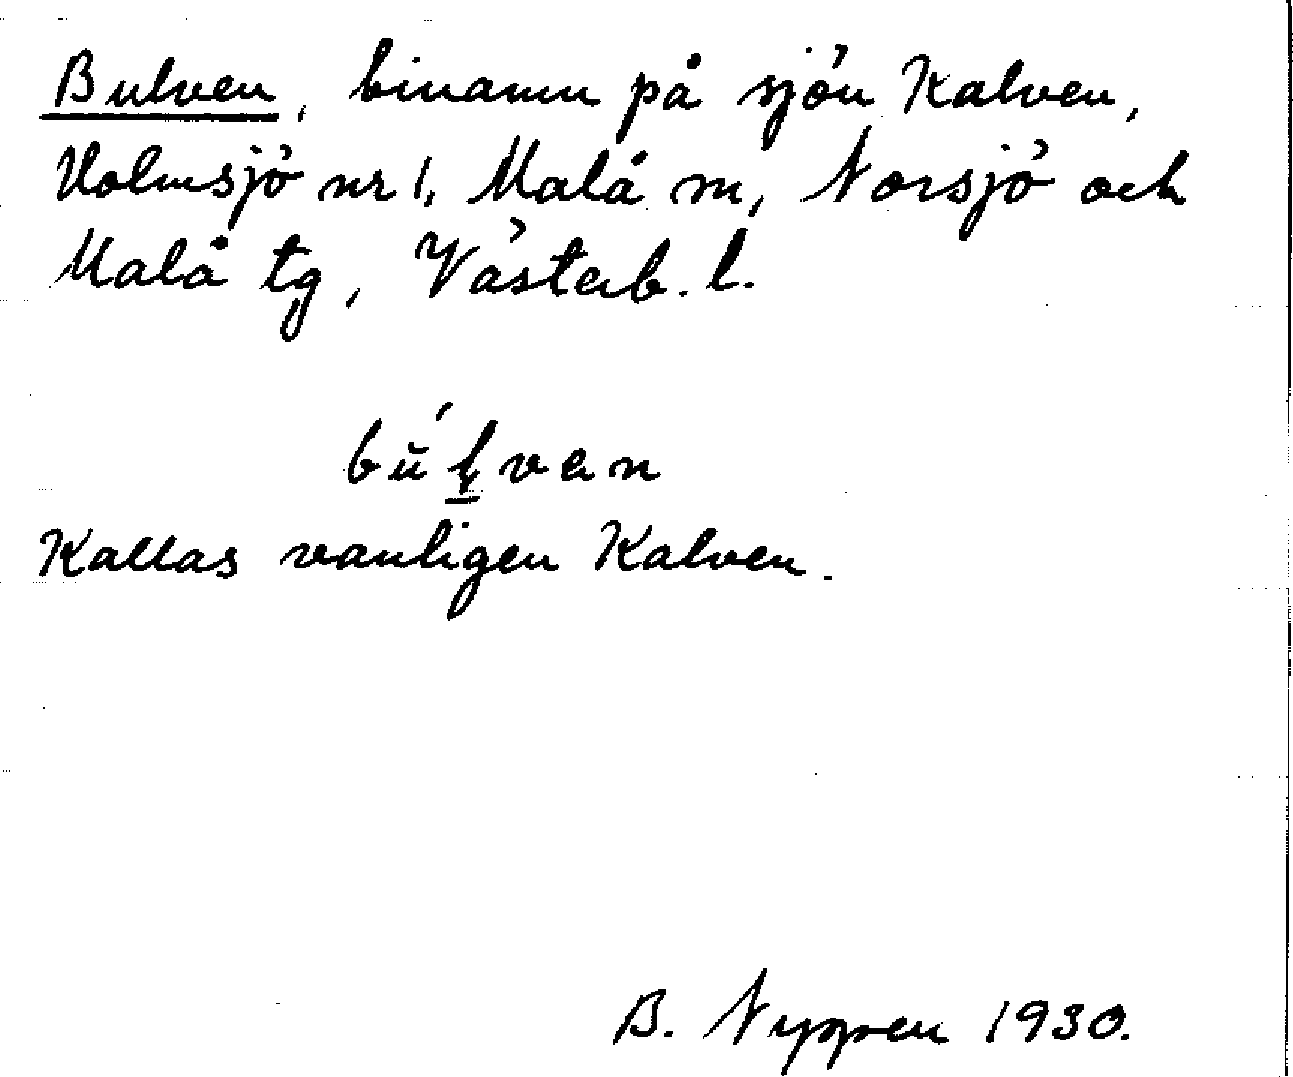 Bulven, binamn på sjön Kalven,
Holmsjö nr 1, Malå sn, Norsjö och
Malå tg, Västerb. l.
bŭ́ḷven
Kallas vanligen Kalven.
B. Nyppen 1930.